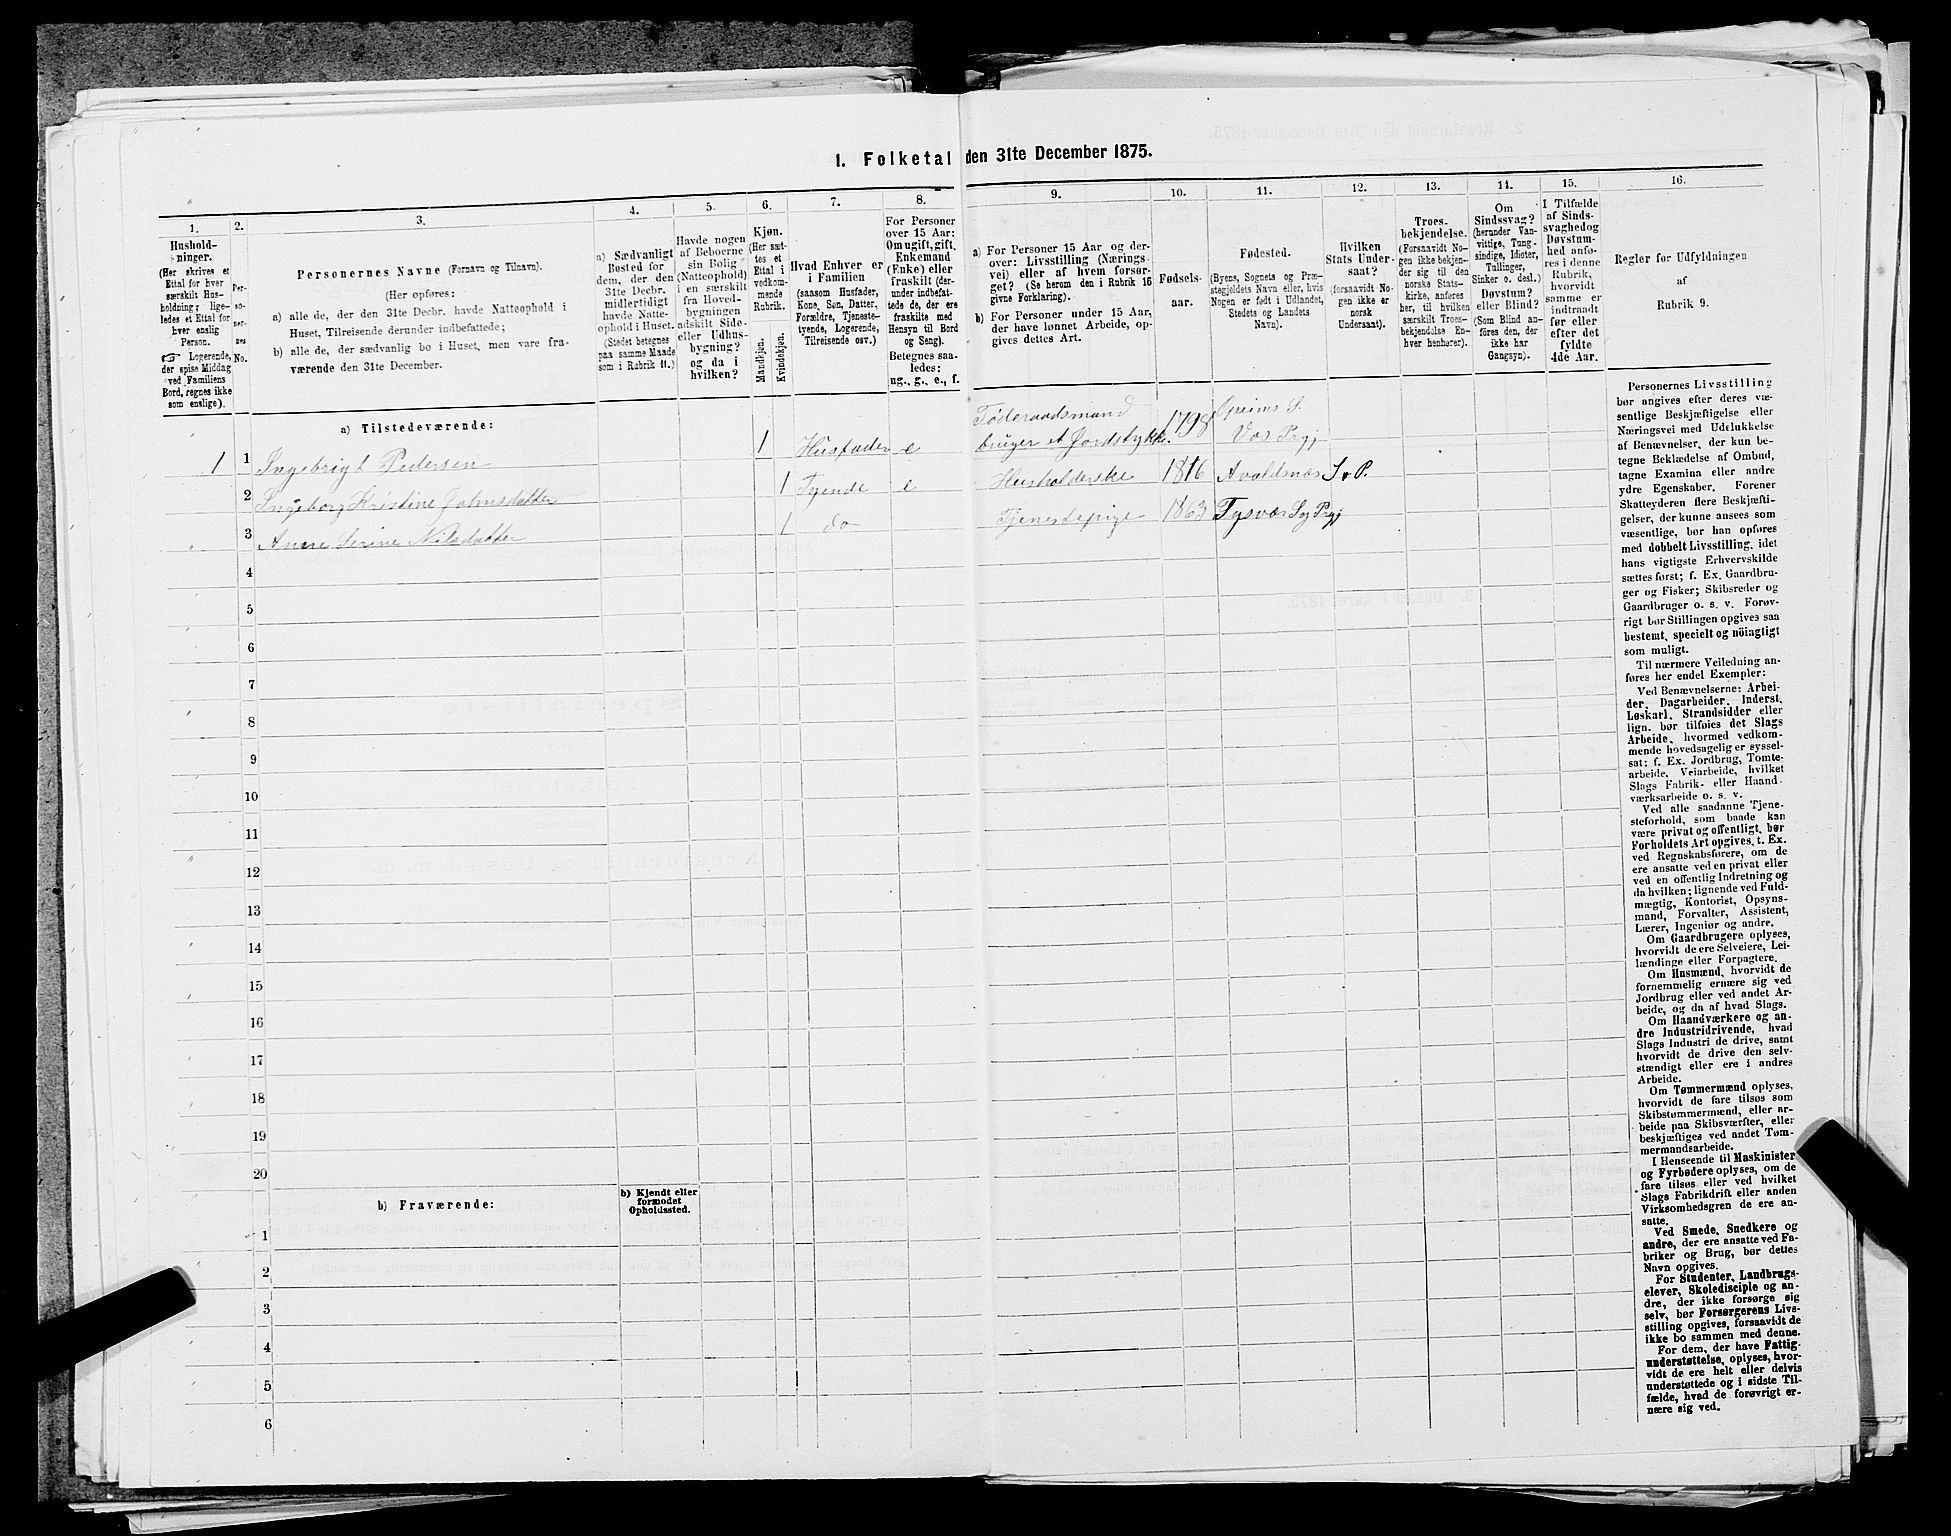 1. Folketal den 31te December 1875.
1.
Hushold-
ninger.
(Her skrives et
Ettal for hver
særskilt Hus-
holdning; lige-
ledes et Ettal for
hver enslig
Person.
☞ Logerende,
der spise Middag
ved Familiens
Bord, regnes ikke
som enslige).
2.
Per-
so-
ner-
nes
No.
3.
Personernes Navne (Fornavn og Tilnavn).
(Her opføres:
a) alle de, der den 31te Decbr. havde Natteophold i
Huset, Tilreisende derunder indbefattede;
b) alle de, der sædvanlig bo i Huset, men vare fra-
værende den 31te December.
4.
a) Sædvanligt
Bosted for
dem, der den
31te Decbr.
midlertidigt
havde Natte-
ophold i Huset.
(Stedet betegnes
paa samme Maade
som i Rubrik 11.)
5.
Havde nogen
af Beboerne
sin Bolig
(Natteophold)
i en særskilt
fra Hoved-
bygningen
adskilt Side-
eller Udhus-
bygning?
og da i
hvilken?
6.
Kjøn.
(Her sæt-
tes et
Ettal i
vedkom-
mende
Rubrik.
Mandkjøn.
Kvindekjøn.
7.
Hvad Enhver er
i Familien
(saasom Husfader,
Kone, Søn, Datter,
Forældre, Tjeneste-
tyende, Logerende,
Tilreisende osv.)
8.
For Personer
over 15 Aar:
Om ugift, gift,
Enkemand
(Enke) eller
fraskilt (der-
under indbefat-
tede de, der ere
fraskilte med
Hensyn til Bord
og Seng).
Betegnes saa-
ledes:
ug., g., e., f.
9.
a) For Personer 15 Aar og der-
over: Livsstilling (Nærings-
vei) eller af hvem forsør-
get? (Se herom den i Rubrik 16
givne Forklaring).
b) For Personer under 15 Aar,
der have lønnet Arbeide, op-
gives dettes Art.
10.
Fødsels-
aar.
11.
Fødested.
(Byens, Sognets og Præ-
stegjeldets Navn eller, hvis
Nogen er født i Udlandet,
Stedets og Landets
Navn).
12.
Hvilken
Stats Under-
saat?
(forsaavidt No-
gen ikke er
norsk
Undersaat).
13.
Troes-
bekjendelse.
(Forsaavidt No-
gen ikke bekjen-
der sig til den
norske Stats-
kirke, anføres
her, til hvilken
særskilt Troes-
bekjendelse En-
hver henhører).
14.
Om
Sindssvag?
(herunder Van-
vittige, Tung-
sindige, Idioter,
Tullinger,
Sinker o. desl.)
Døvstum?
eller Blind?
(Som Blind an-
føres den, der
ikke har
Gangsyn).
15.
I Tilfælde
af Sinds-
svaghed og
Døvstum-
hed anfø-
res i denne
Rubrik,
hvorvidt
samme er
indtraadt
før eller
efter det
fyldte
4de Aar.
16.
Regler for Udfyldningen
af
Rubrik 9.
a) Tilstedeværende:
1 1 Ingebrigt Pedersen 1 Husfader e Føderaadsmand bruger et Jordstykke. 1798 Opeims S. Vos Prgj
2 Ingeborg Kristine Johnsdatter 1 Tyende e Husholderske 1816 Avaldsnæs S. P.
3 Anne Serine Nilsdatter 1 do Tjenestepige 1863 Tysvær Sog Prgj
4
5
6
7
8
9
10
11
12
13
14
15
16
17
18
19
20
b) Fraværende:
b) Kjendt eller
formodet
Opholdssted.
1
2
3
4
5
6
Personernes Livsstilling
bør angives efter deres væ-
sentlige Beskjæftigelse eller
Næringsvei med Udelukkelse
af Benævnelser, der kun be-
tegne Beklædelse af Ombud,
tagne Examina eller andre
ydre Egenskaber. Forener
Skatteyderen flere Beskjæfti-
gelser, der kunne ansees som
væsentlige, bør han opføres
med dobbelt Livsstilling, idet
hans vigtigste Erhvervskilde
sættes først; f. Ex. Gaardbru-
ger og Fisker; Skibsreder og
Gaardbruger o. s. v. Forøv-
rigt bør Stillingen opgives saa
bestemt, specielt og nöiagtigt
som muligt.
Til nærmere Veiledning an-
føres her endel Exempler:
Ved Benævnelserne: Arbei-
der, Dagarbeider, Inderst,
Løskarl, Strandsidder eller
lign. bør tilføies det Slags
Arbeide, hvormed vedkom-
mende hovedsagelig er syssel-
sat; f. Ex. Jordbrug, Tomte-
arbeide, Veiarbeide, hvilket
Slags Fabrik- eller Haand-
værksarbeide o. s. v.
Ved alle saadanne Tjene-
steforhold, som baade kan
være privat og offentligt, bør
Forholdets Art opgives, t. Ex.
ved Regnskabsførere, om de
ere ansatte ved en privat eller
ved en offentlig Indretning og
da hvilken; lignende ved Fuld-
mægtig, Kontorist, Opsyns-
mand, Forvalter, Assistent,
Lærer, Ingeniør og andre.
Om Gaardbrugere oplyses,
hvorvidt de ere Selveiere, Lei-
lændinge eller Forpagtere.
Om Husmænd, hvorvidt de
fornemmelig ernære sig ved
Jordbrug eller ved andet Ar-
beide, og da af hvad Slags.
Om Haandværkere og an-
dre Industridrivende, hvad
Slags Industri de drive, samt
hvorvidt de drive den selv-
stændigt eller ere i andres
Arbeide.
Om Tømmermænd oplyses,
hvorvidt de fare tilsøs som
Skibstømmermænd, eller ar-
beide paa Skibsværfter, eller
beskjæftiges ved andet Tøm-
mermandsarbeide.
I Henseende til Maskinister
og Fyrbødere oplyses, om de
fare tilsøs eller ved hvilket
Slags Fabrikdrift eller anden
Virksomhedsgren de ere an-
satte.
Ved Smede, Snedkere og
andre, der ere ansatte ved Fa-
briker og Brug, bør dettes
Navn opgives.
For Studenter, Landbrugs-
elever, Skoledisciple og an-
dre, der ikke forsørge sig
selv, bør Forsørgerens Livs-
stilling opgives, forsaavidt de
ikke bo sammen med denne.
For dem, der have Fattig-
understøttelse, oplyses, hvor-
vidt de ere helt eller delvis
understøttede og i sidste Til-
fælde, hvad de forøvrigt er-
nære sig ved.